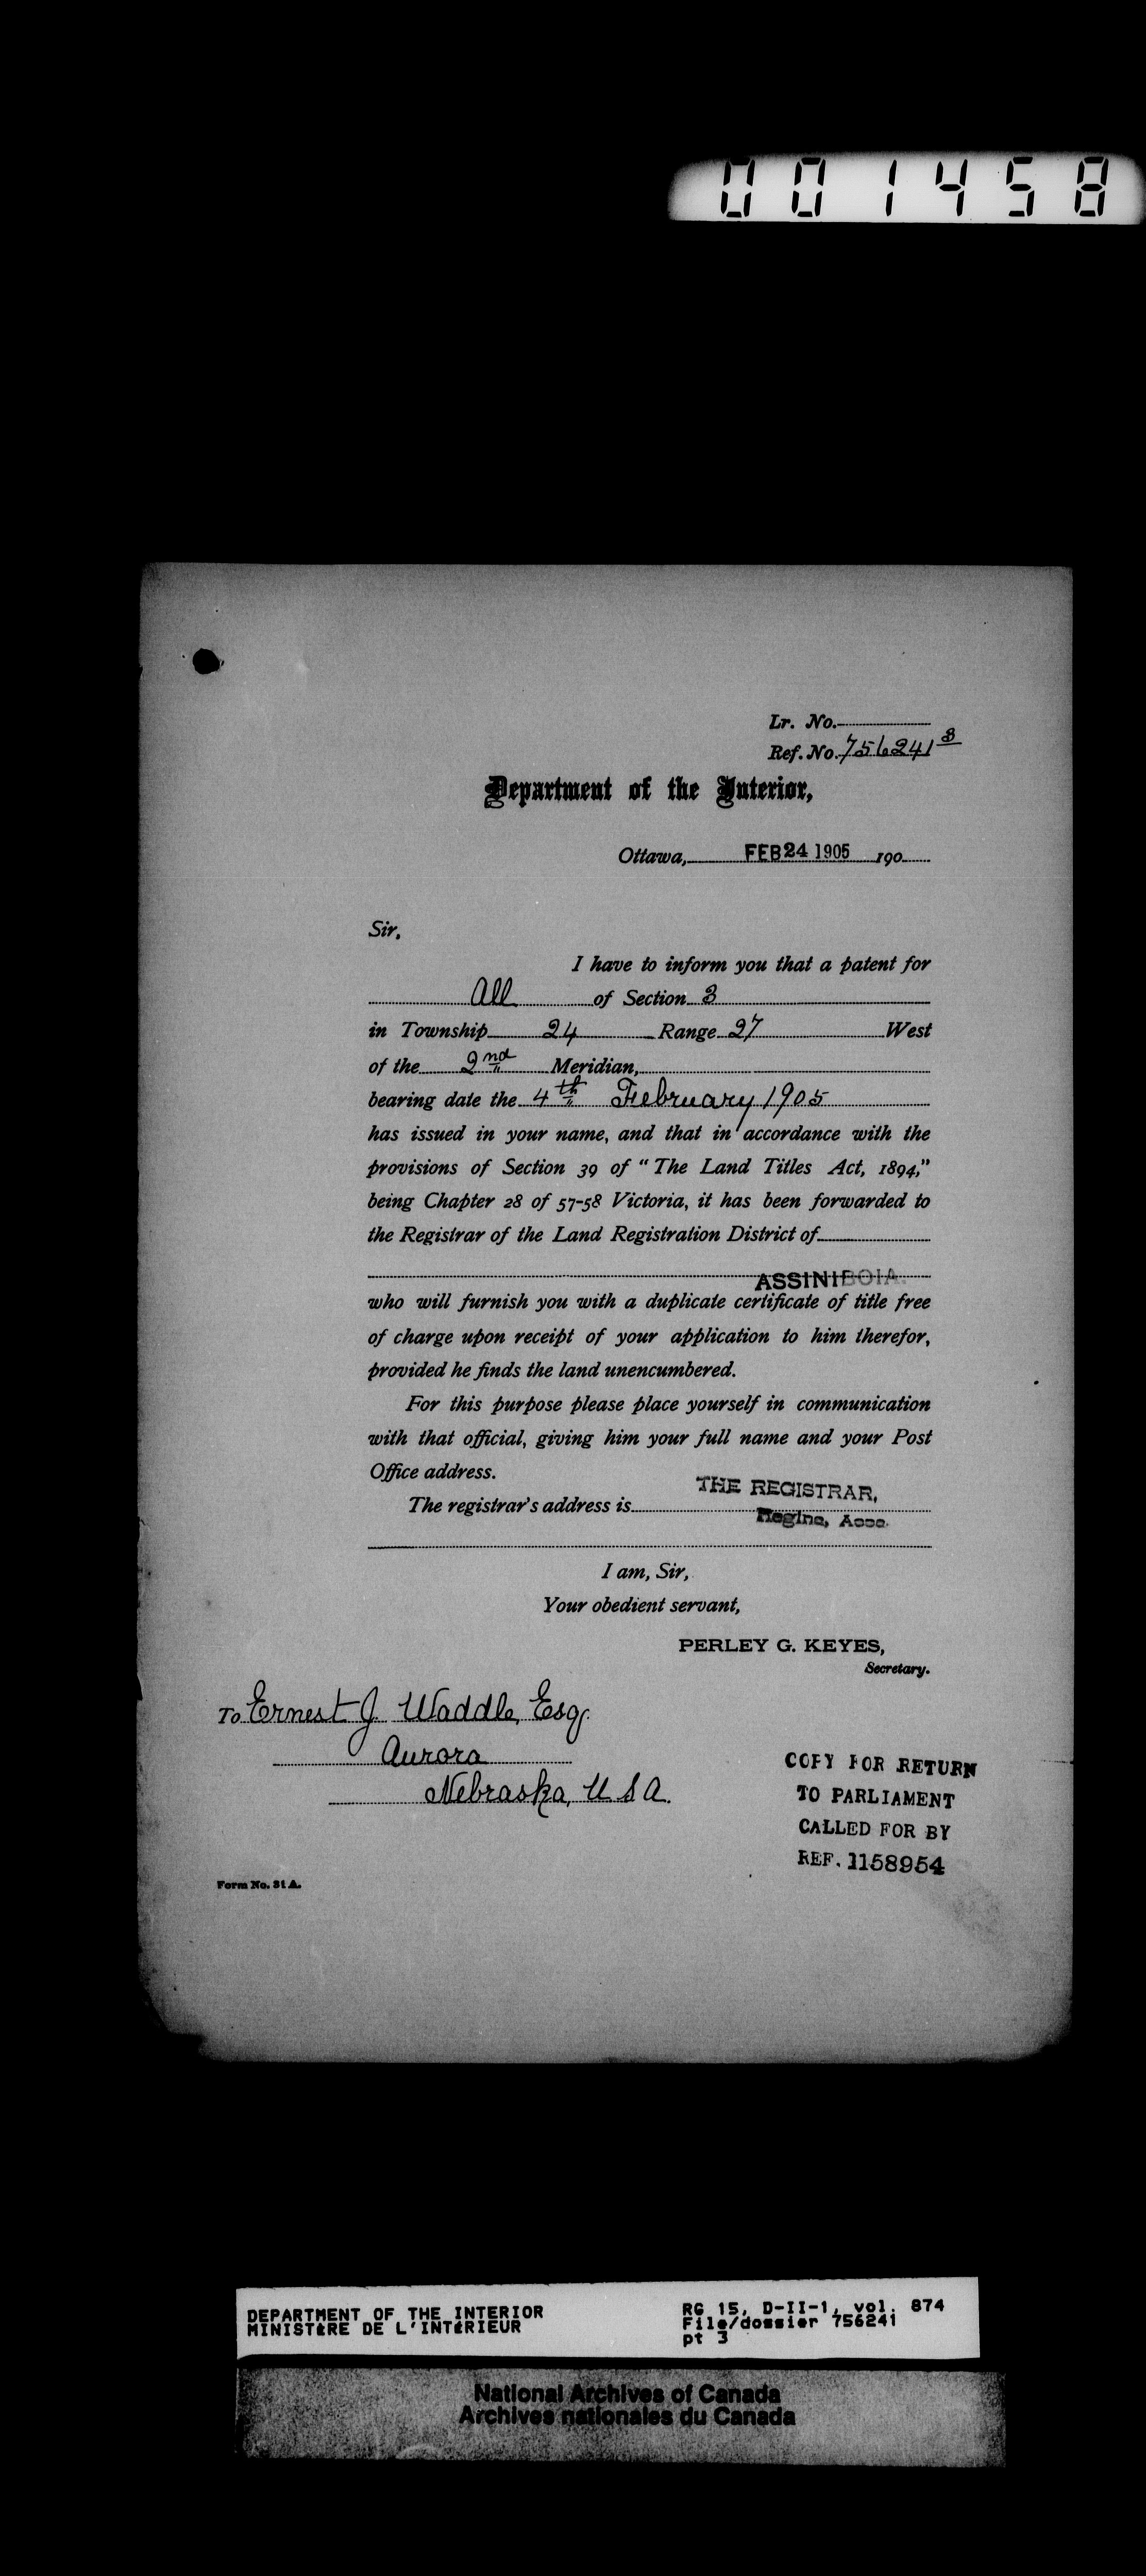 001458
Lr. No.
Ref. No. 756241 3
Department of the Interior,
Ottawa, FEB 24 1905 190
Sir,
I have to inform you that a patent for
All of Section 3
in Township 24 Range 27 West
of the 2nd Meridian,
bearing date the 4th February 1905
has issued in your name, and that in accordance with the
provisions of Section 39 of "The Land Titles Act, 1894,"
being Chapter 28 of 57-58 Victoria, it has been forwarded to
the Registrar of the Land Registration District of
ASSINIBOIA.
who will furnish you with a duplicate certificate of title free
of charge upon receipt of your application to him therefor,
provided he finds the land unencumbered.
For this purpose please place yourself in communication
with that official, giving him your full name and your Post
Office address.
The registrar's address is THE REGISTRAR,
Regina, Assa.
I am, Sir,
Your obedient servant,
PERLEY G. KEYES,
Secretary.
To Ernest J. Waddle, Esq.
Aurora
Nebraska, U S A.
COPY FOR RETURN
TO PARLIAMENT
CALLED FOR BY
REF. 1158954
Form No. 31 A.
DEPARTMENT OF THE INTERIOR
MINISTÈRE DE L'INTÉRIEUR
RG 15, D-II-1, vol. 874
File/dossier 756241
pt 3
National Archives of Canada
Archives nationales du Canada